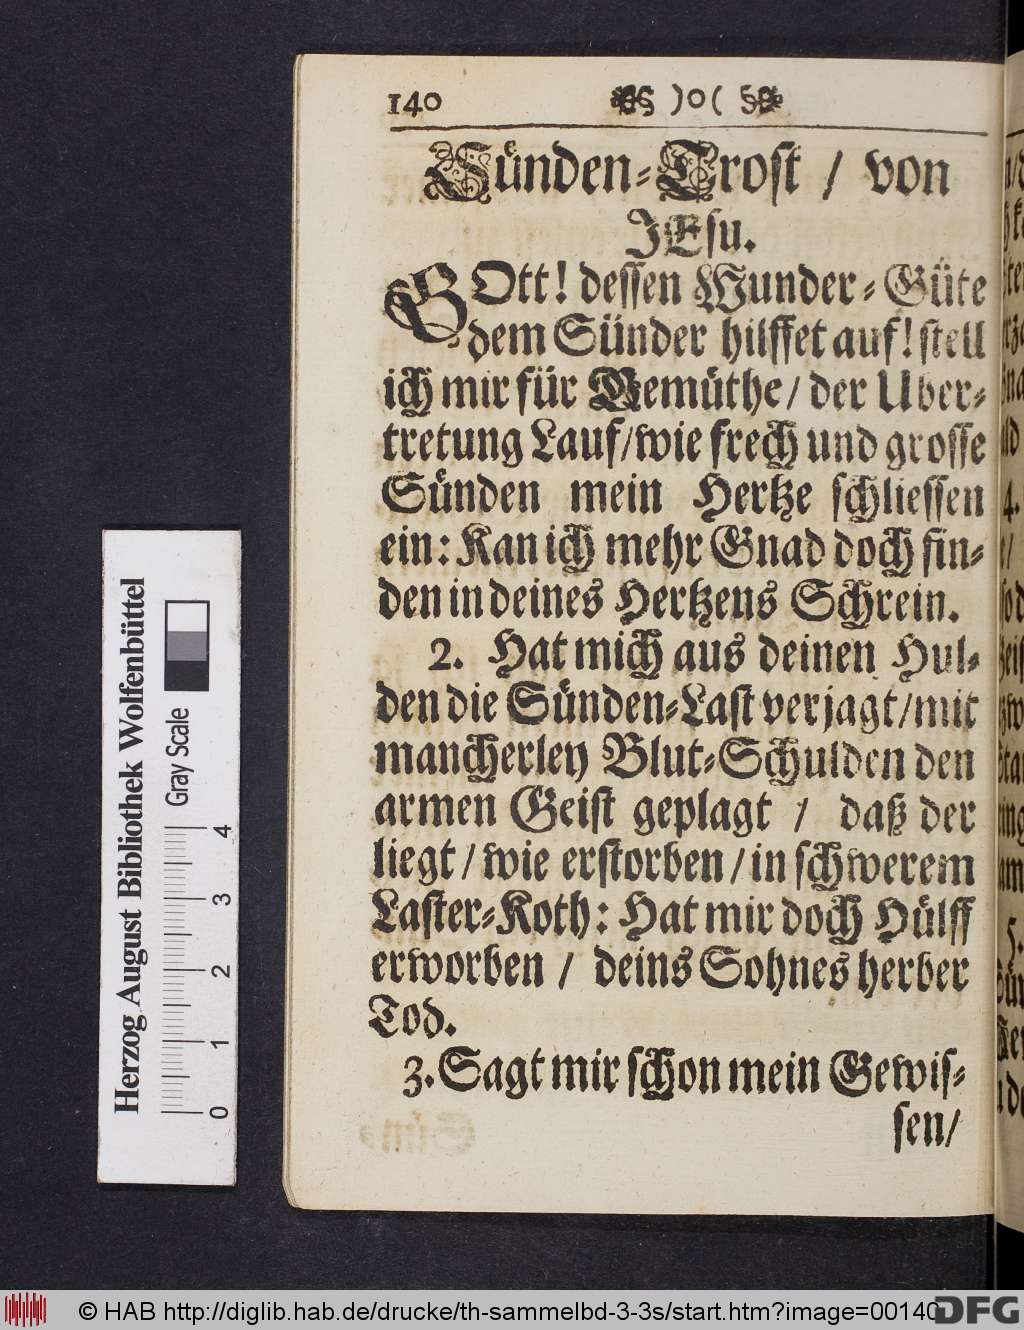 140 )o(
Sünden-Trost / von
JEsu.
GOtt! dessen Wunder-Güte
dem Sünder hilffet auf! stell
ich mir für Gemüthe / der Uber-
tretung Lauf / wie frech und grosse
Sünden mein Hertze schliessen
ein: Kan ich mehr Gnad doch fin-
den in deines Hertzens Schrein.
2. Hat mich aus deinen Hul-
den die Sünden-Last verjagt / mit
mancherley Blut-Schulden den
armen Geist geplagt / daß der
liegt / wie erstorben / in schwerem
Laster-Koth: Hat mir doch Hülff
erworben / deins Sohnes herber
Tod.
3. Sagt mir schon mein Gewis-
sen/
Herzog August Bibliothek Wolfenbüttel
Gray Scale
0 1 2 3 4
© HAB http://diglib.hab.de/drucke/th-sammelbd-3-3s/start.htm?image=00140
DFG